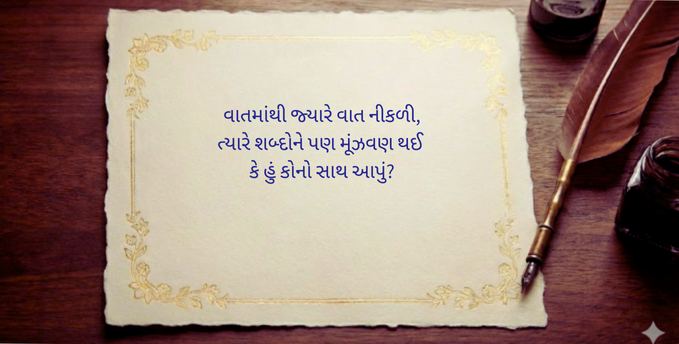 વાતમાંથી જ્યારે વાત નીકળી,
ત્યારે શબ્દોને પણ મૂંઝવણ થઈ
કે હું કોનો સાથ આપું?